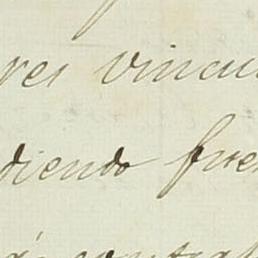 res vincu
diendo fue